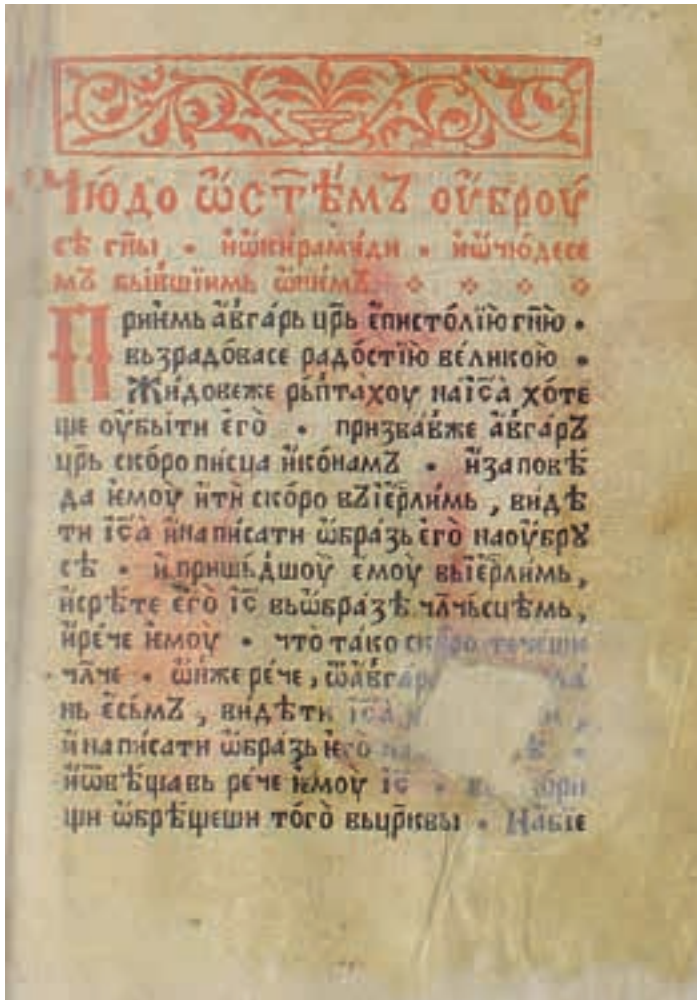 Чю́до ѿ ст҃ѣ́мЪ оу҆броу
сѣ гн҃ы • и҆ѡ҆кирами́ди • и҆ѡ҆чю́десе
мЪ бы́вшїимь ѿни́мЪ
Прие́мь а҆́вгарь цр҃ь е҆писто́лїю гн҃ю •
вьзрадо́васе радо́стїю ве́ликою •
Жи́довеже рь́птахоу наі҆с҃а хо́те
ще оу҆бы́ти е҆го̀ • призва́вже а҆́вга́рЪ
цр҃ь ско́ро пи́сца и҆ко́намЪ • и҆запове́
да ѥ҆моу ити ско́ро вЪі҆ер҃ли́мь , ви́дѣ
ти і҆с҃а и҆напи́сати ѡ҆́бра́зь е҆го̀ наоу҆́брꙋ
сѣ • и҆ пришь́дшоу е҆моу вьі҆ер҃ли́мь ,
и҆срѣ́те е҆го̀ і҆с҃ вьѡ҆бра́зѣ чл҃чьсцѣмь ,
и҆ре́че ѥ҆моу • что̀ та́ко ско́ро тече́ши
чл҃че • ѡ҆́нже ре́че , ѿа҆́вгар
нь е҆сь́мЪ , ви́дѣти і҆с҃а
и҆напи́сати ѡ҆́бра́зь ѥ҆го̀
и҆ѿвѣща́вь ре́че ѥ҆моу і҆с҃ •
щи ѡ҆брѣ́щеши то́го̀ вьцр҃квы • На́бїе